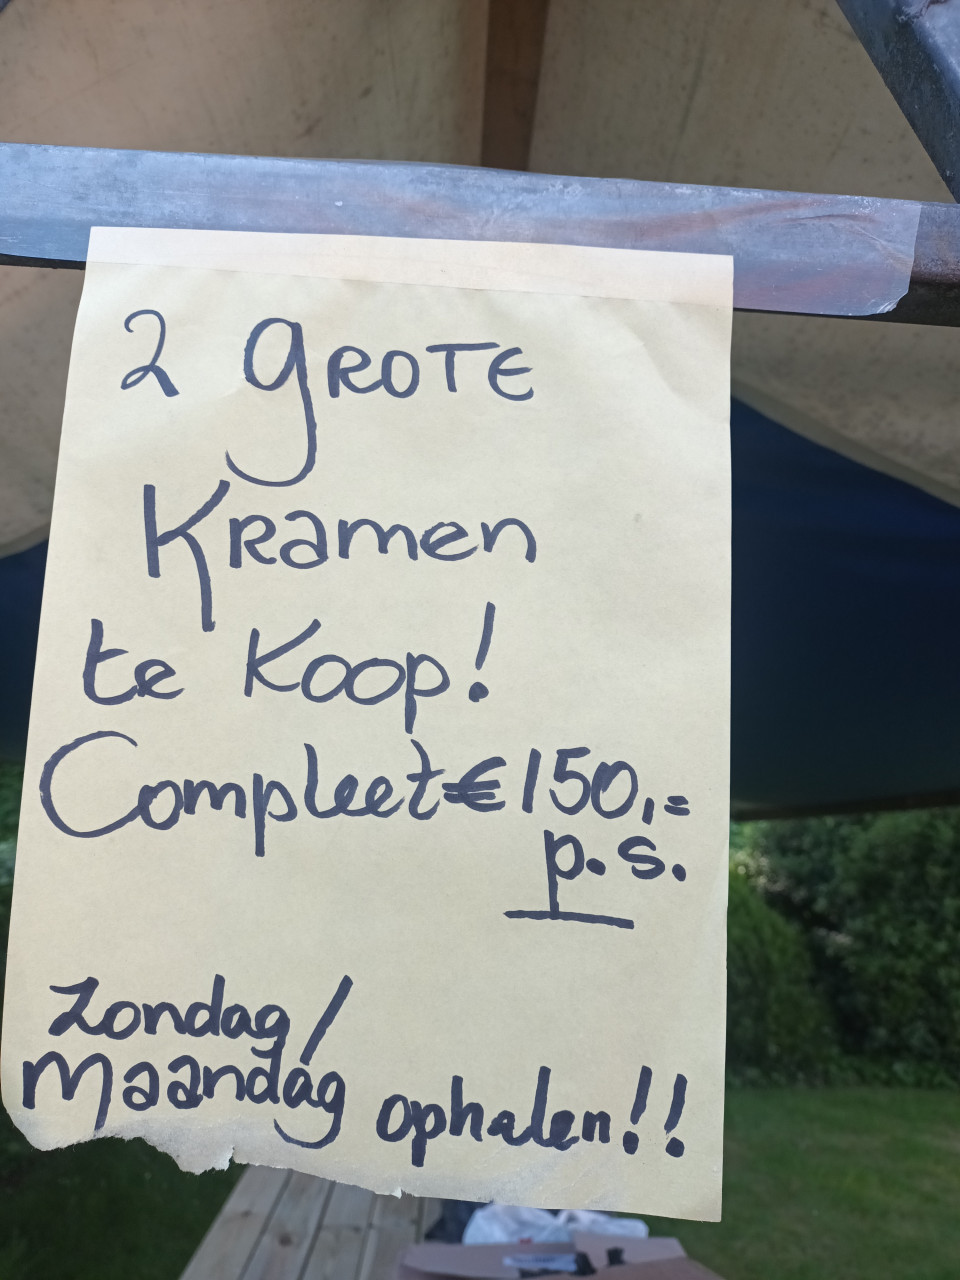 2 GROTE
Kramen
te Koop!
Compleet € 150,=
p.s.
Zondag/
Maandag ophalen!!